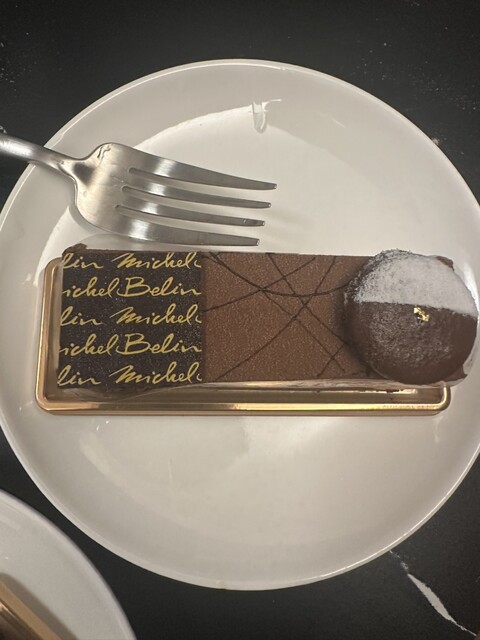 lin Michel
ickel Belin
lin Michel
ickel Belin
lin Michel